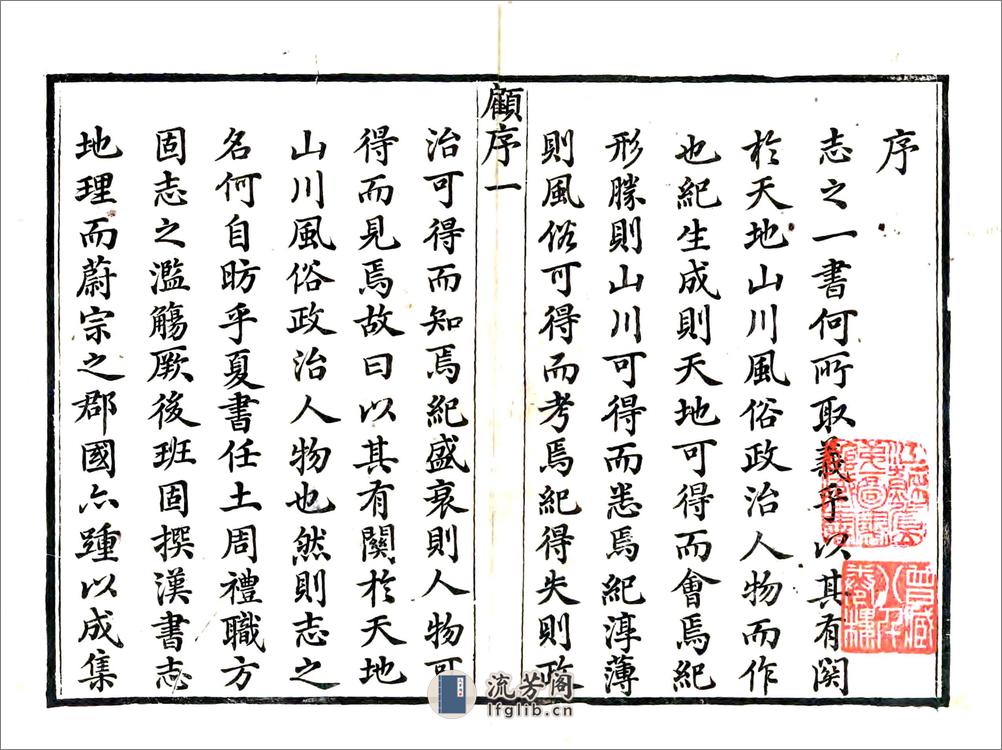 序
志之一書何所取義乎以其有関
於天地山川風俗政治人物而作
也紀生成則天地可得而會焉紀
形勝則山川可得而悉焉紀淳薄
則風俗可得而考焉紀得失則政
顧序一
治可得而知焉紀盛衰則人物可
得而見焉故曰以其有關於天地
山川風俗政治人物也然則志之
名何自昉乎夏書任土周禮職方
固志之濫觴厥後班固撰漢書志
地理而蔚宗之郡國亦踵以成集
曾藏八千卷樓
流芳阁
lfglib.cn